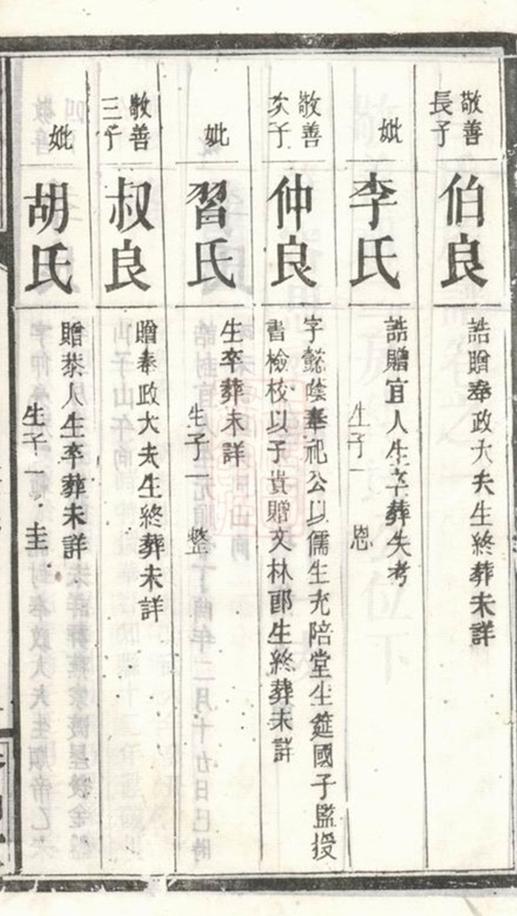 敬善
長子
伯良
誥贈奉政大夫生終葬未詳
妣
李氏
誥贈宜人生卒葬失考
生子一 恩
敬善
次子
仲良
字懿陰奉祀公以儒生充陪堂生筵國子監授
書檢校以子貴贈文林郎生終葬未詳
妣
習氏
生卒葬未詳
生子一 整
敬善
三子
叔良
贈奉政大夫生終葬未詳
妣
胡氏
贈恭人生卒葬未詳
生子一 圭